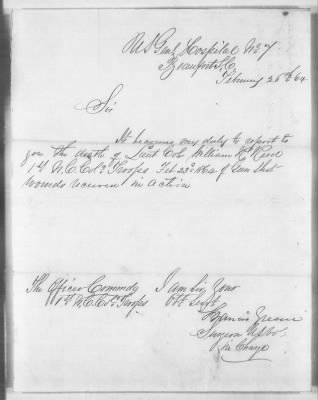 U S Genl Hospital No 7
Beaufort S.C.
February 26th 64
Sir
It becomes my duty to report to
you the death of Lieut Col William N. Reed
1st N.C. Cold Troops Feb. 23d 1864 of Gun Shot
wounds received in action
The Officer Commdg I am Sir Your
1st N.C. Cold Troops Obt. Servt
Francis Greene
Surgeon U.S. Vols
in Charge